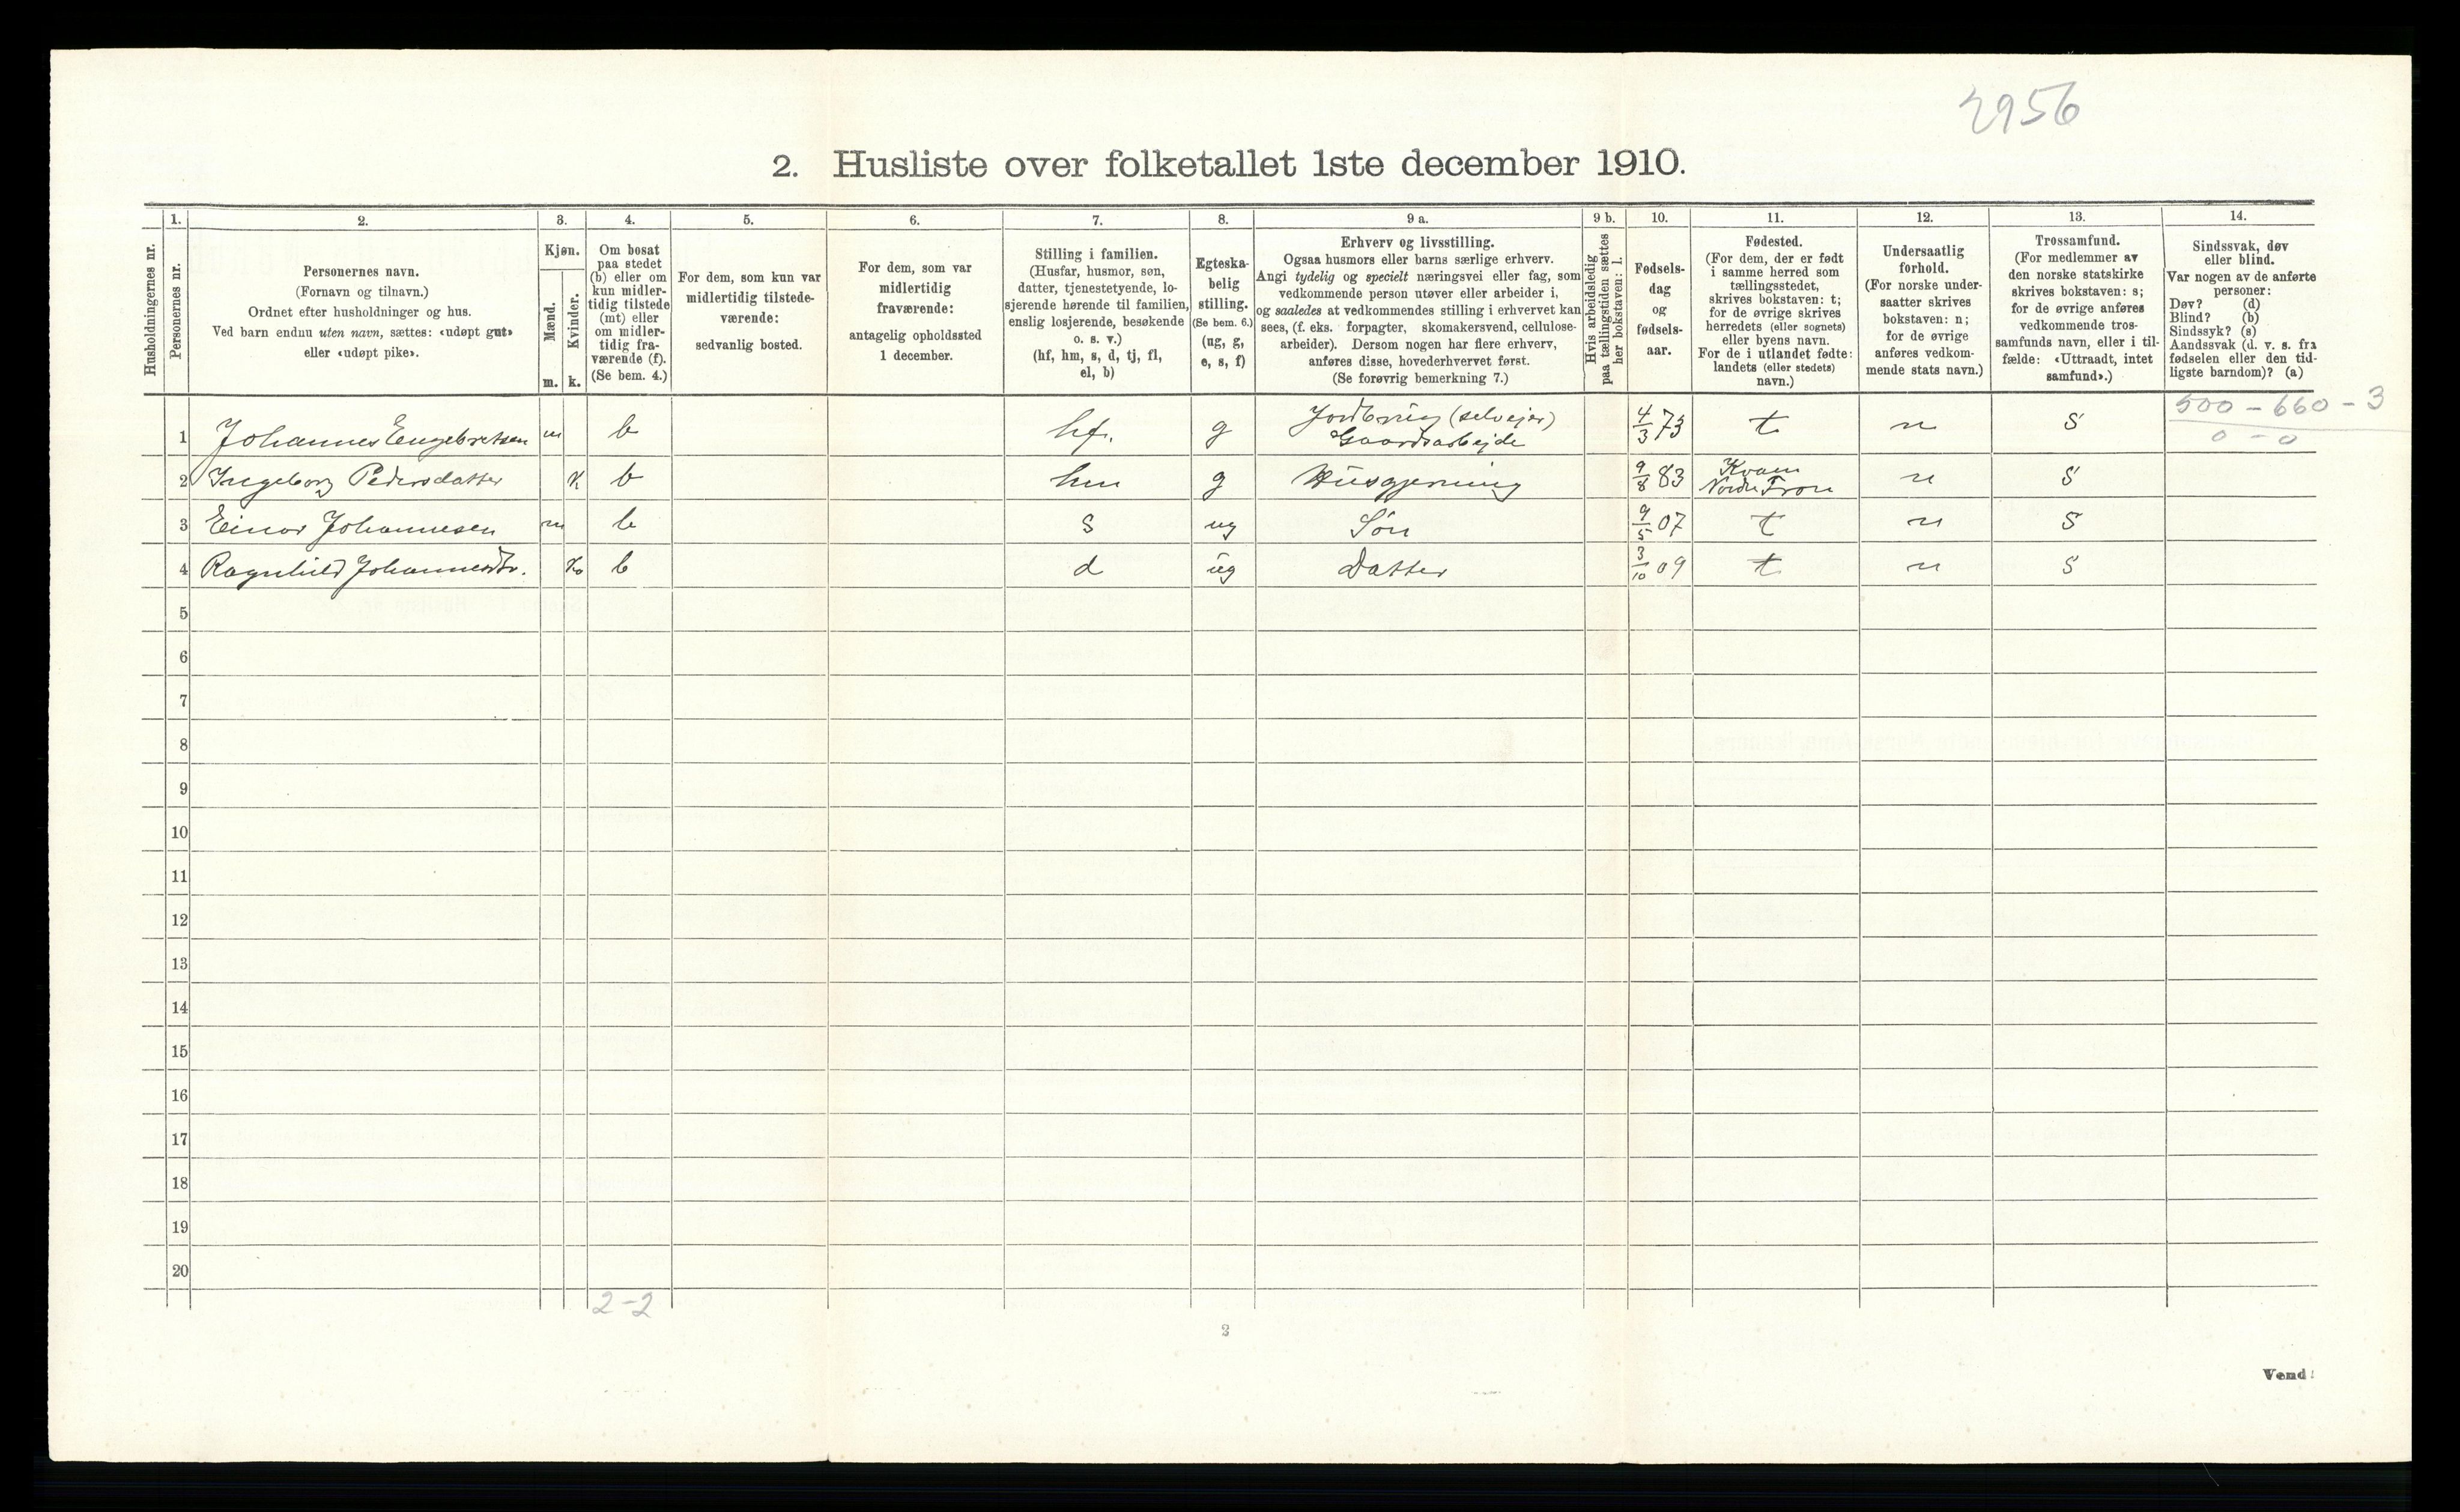 2956
2. Husliste over folketallet 1ste december 1910.
Husholdningernes nr.
1.
Personernes nr.
2.
Personernes navn.
(Fornavn og tilnavn.)
Ordnet efter husholdninger og hus.
Ved barn endnu uten navn, sættes: «udøpt gut»
eller «udøpt pike».
3.
Kjøn.
Mænd.
Kvinder.
m. k.
4.
Om bosat
paa stedet
(b) eller om
kun midler-
tidig tilstede
(mt) eller
om midler-
tidig fra-
værende (f).
(Se bem. 4.)
5.
For dem, som kun var
midlertidig tilstede-
værende:
sedvanlig bosted.
6.
For dem, som var
midlertidig
fraværende:
antagelig opholdssted
1 december.
7.
Stilling i familien.
(Husfar, husmor, søn,
datter, tjenestetyende, lo-
sjerende hørende til familien,
enslig losjerende, besøkende
o. s. v.)
(hf, hm, s, d, tj, fl,
el, b)
8.
Egteska-
belig
stilling.
(Se bem. 6.)
(ug, g,
e, s, f)
9 a.
Erhverv og livsstilling.
Ogsaa husmors eller barns særlige erhverv.
Angi tydelig og specielt næringsvei eller fag, som
vedkommende person utøver eller arbeider i,
og saaledes at vedkommendes stilling i erhvervet kan
sees, (f. eks. forpagter, skomakersvend, cellulose-
arbeider). Dersom nogen har flere erhverv,
anføres disse, hovederhvervet først.
(Se forøvrig bemerkning 7.)
9 b.
Hvis arbeidsledig
paa tællingstiden sættes
her bokstaven: l.
10.
Fødsels-
dag
og
fødsels-
aar.
11.
Fødested.
(For dem, der er født
i samme herred som
tællingsstedet,
skrives bokstaven: t;
for de øvrige skrives
herredets (eller sognets)
eller byens navn.
For de i utlandet fødte:
landets (eller stedets)
navn.)
12.
Undersaatlig
forhold.
(For norske under-
saatter skrives
bokstaven: n;
for de øvrige
anføres vedkom-
mende stats navn.)
13.
Trossamfund.
(For medlemmer av
den norske statskirke
skrives bokstaven: s;
for de øvrige anføres
vedkommende tros-
samfunds navn, eller i til-
fælde: «Uttraadt, intet
samfund».)
14.
Sindssvak, døv
eller blind.
Var nogen av de anførte
personer:
Døv? (d)
Blind? (b)
Sindssyk? (s)
Aandssvak (d. v. s. fra
fødselen eller den tid-
ligste barndom)? (a)
500 - 660 - 3
0 - 0
1 Johannes Engebretsen m b hf. g Jordbrug (selvejer) Gaardsarbejde 4/3 73 t n s
2 Ingeborg Pedersdatter K b hm g Husgjerning 9/8 83 Kvam Nordre Fron n s
3 Einar Johannesen m b s ug Søn 9/5 07 t n s
4 Ragnhild Johannesdtr. K b d ug Datter 3/10 09 t n s
5
6
7
8
9
10
11
12
13
14
15
16
17
18
19
20
2-2
2
Vend!